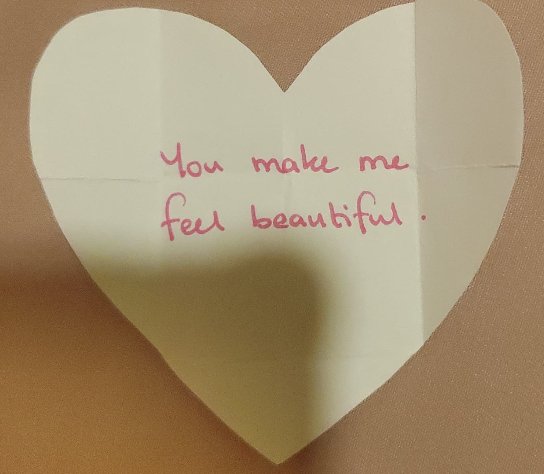 You make me
feel beautiful.